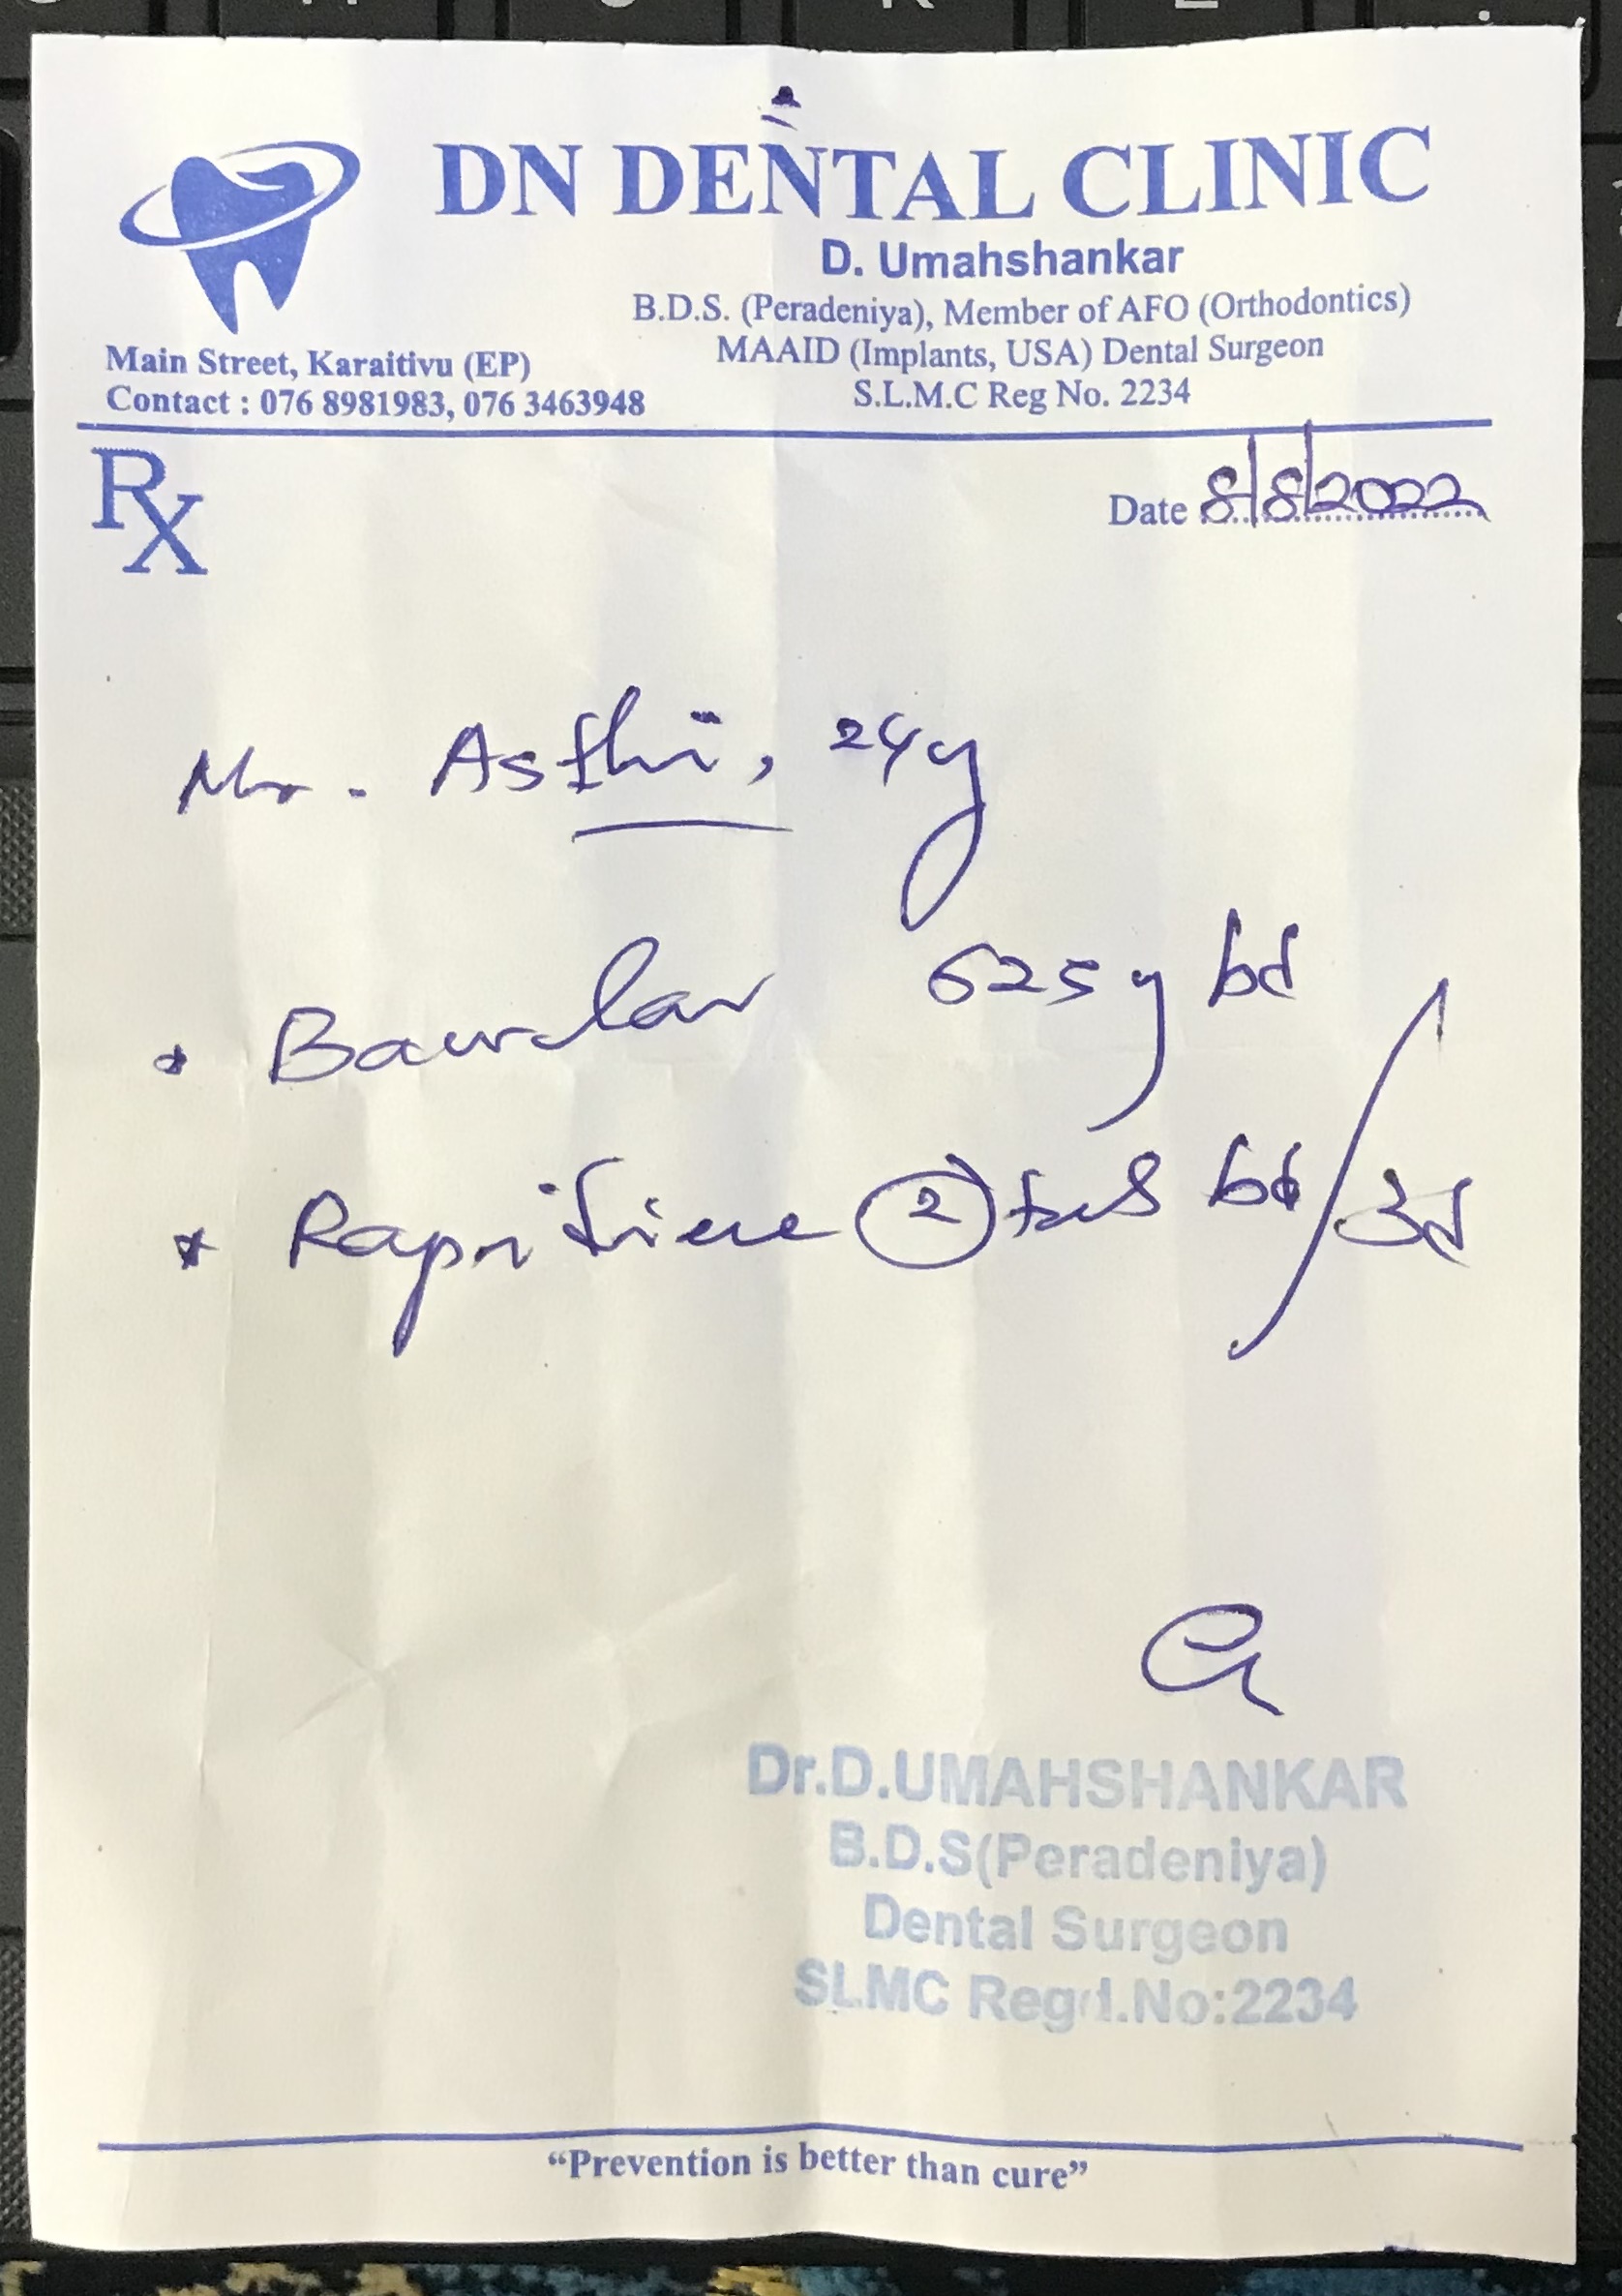 DN DENTAL CLINIC
D. Umahshankar
B.D.S. (Peradeniya), Member of AFO (Orthodontics)
MAAID (Implants, USA) Dental Surgeon
S.L.M.C Reg No. 2234
Main Street, Karaitivu (EP)
Contact : 076 8981983, 076 3463948
Rx
Date 8/8/2022
Mr. 24y
* 625 bd
* 2 bd / 3d
Dr.D.UMAHSHANKAR
B.D.S(Peradeniya)
Dental Surgeon
SLMC Regd.No:2234
“Prevention is better than cure”